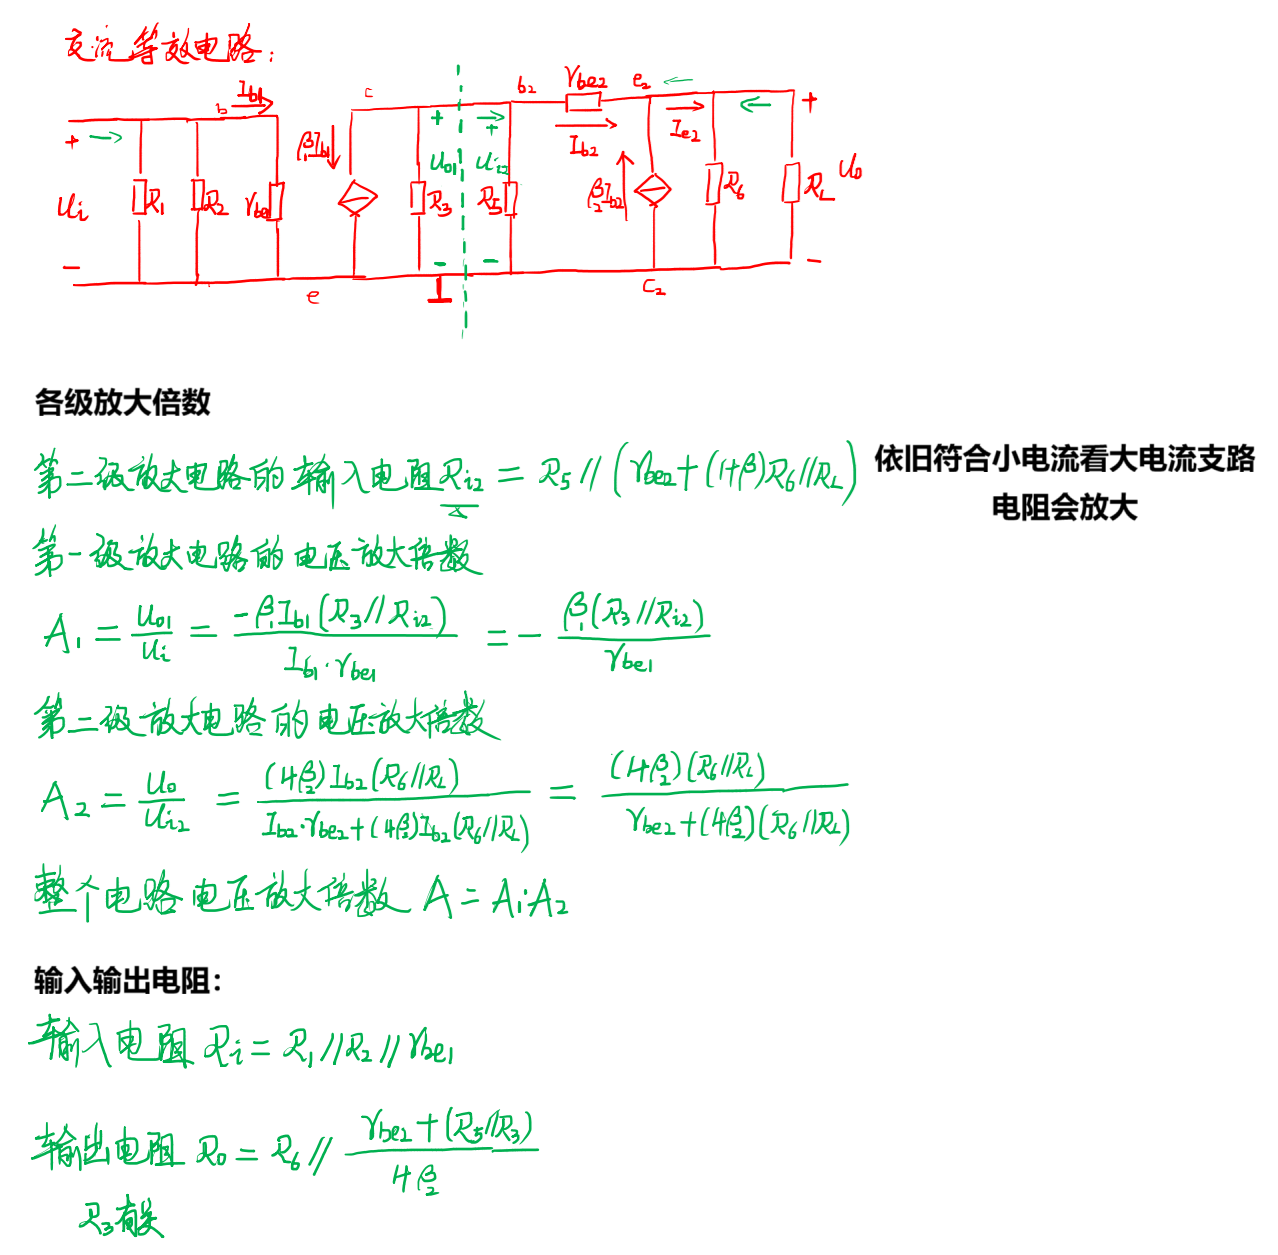 交流等效电路:
b I_b1 c b2 r_be2 e2
+ β1I_b1 + + I_b2 I_e2 +
U_o1 U_i2
U_i R1 R2 r_be1 R3 R5 β2I_b2 R6 R_L U_o
- - - -
e c2
各级放大倍数
第二级放大电路的输入电阻R_i2 = R5 // (r_be2 + (1+β)R6//R_L)
依旧符合小电流看大电流支路
电阻会放大
第一级放大电路的电压放大倍数
A1 = U_o1/U_i = -β1I_b1(R3//R_i2)/(I_b1·r_be1) = - β1(R3//R_i2)/r_be1
第二级放大电路的电压放大倍数
A2 = U_o/U_i2 = (1+β2)I_b2(R6//R_L)/(I_b2·r_be2+(1+β2)I_b2(R6//R_L)) = (1+β2)(R6//R_L)/(r_be2+(1+β2)(R6//R_L))
整个电路电压放大倍数 A = A1·A2
输入输出电阻:
输入电阻 Ri = R1//R2//r_be1
输出电阻 Ro = R6 // (r_be2+(R5//R3))/(1+β2)
R3有关